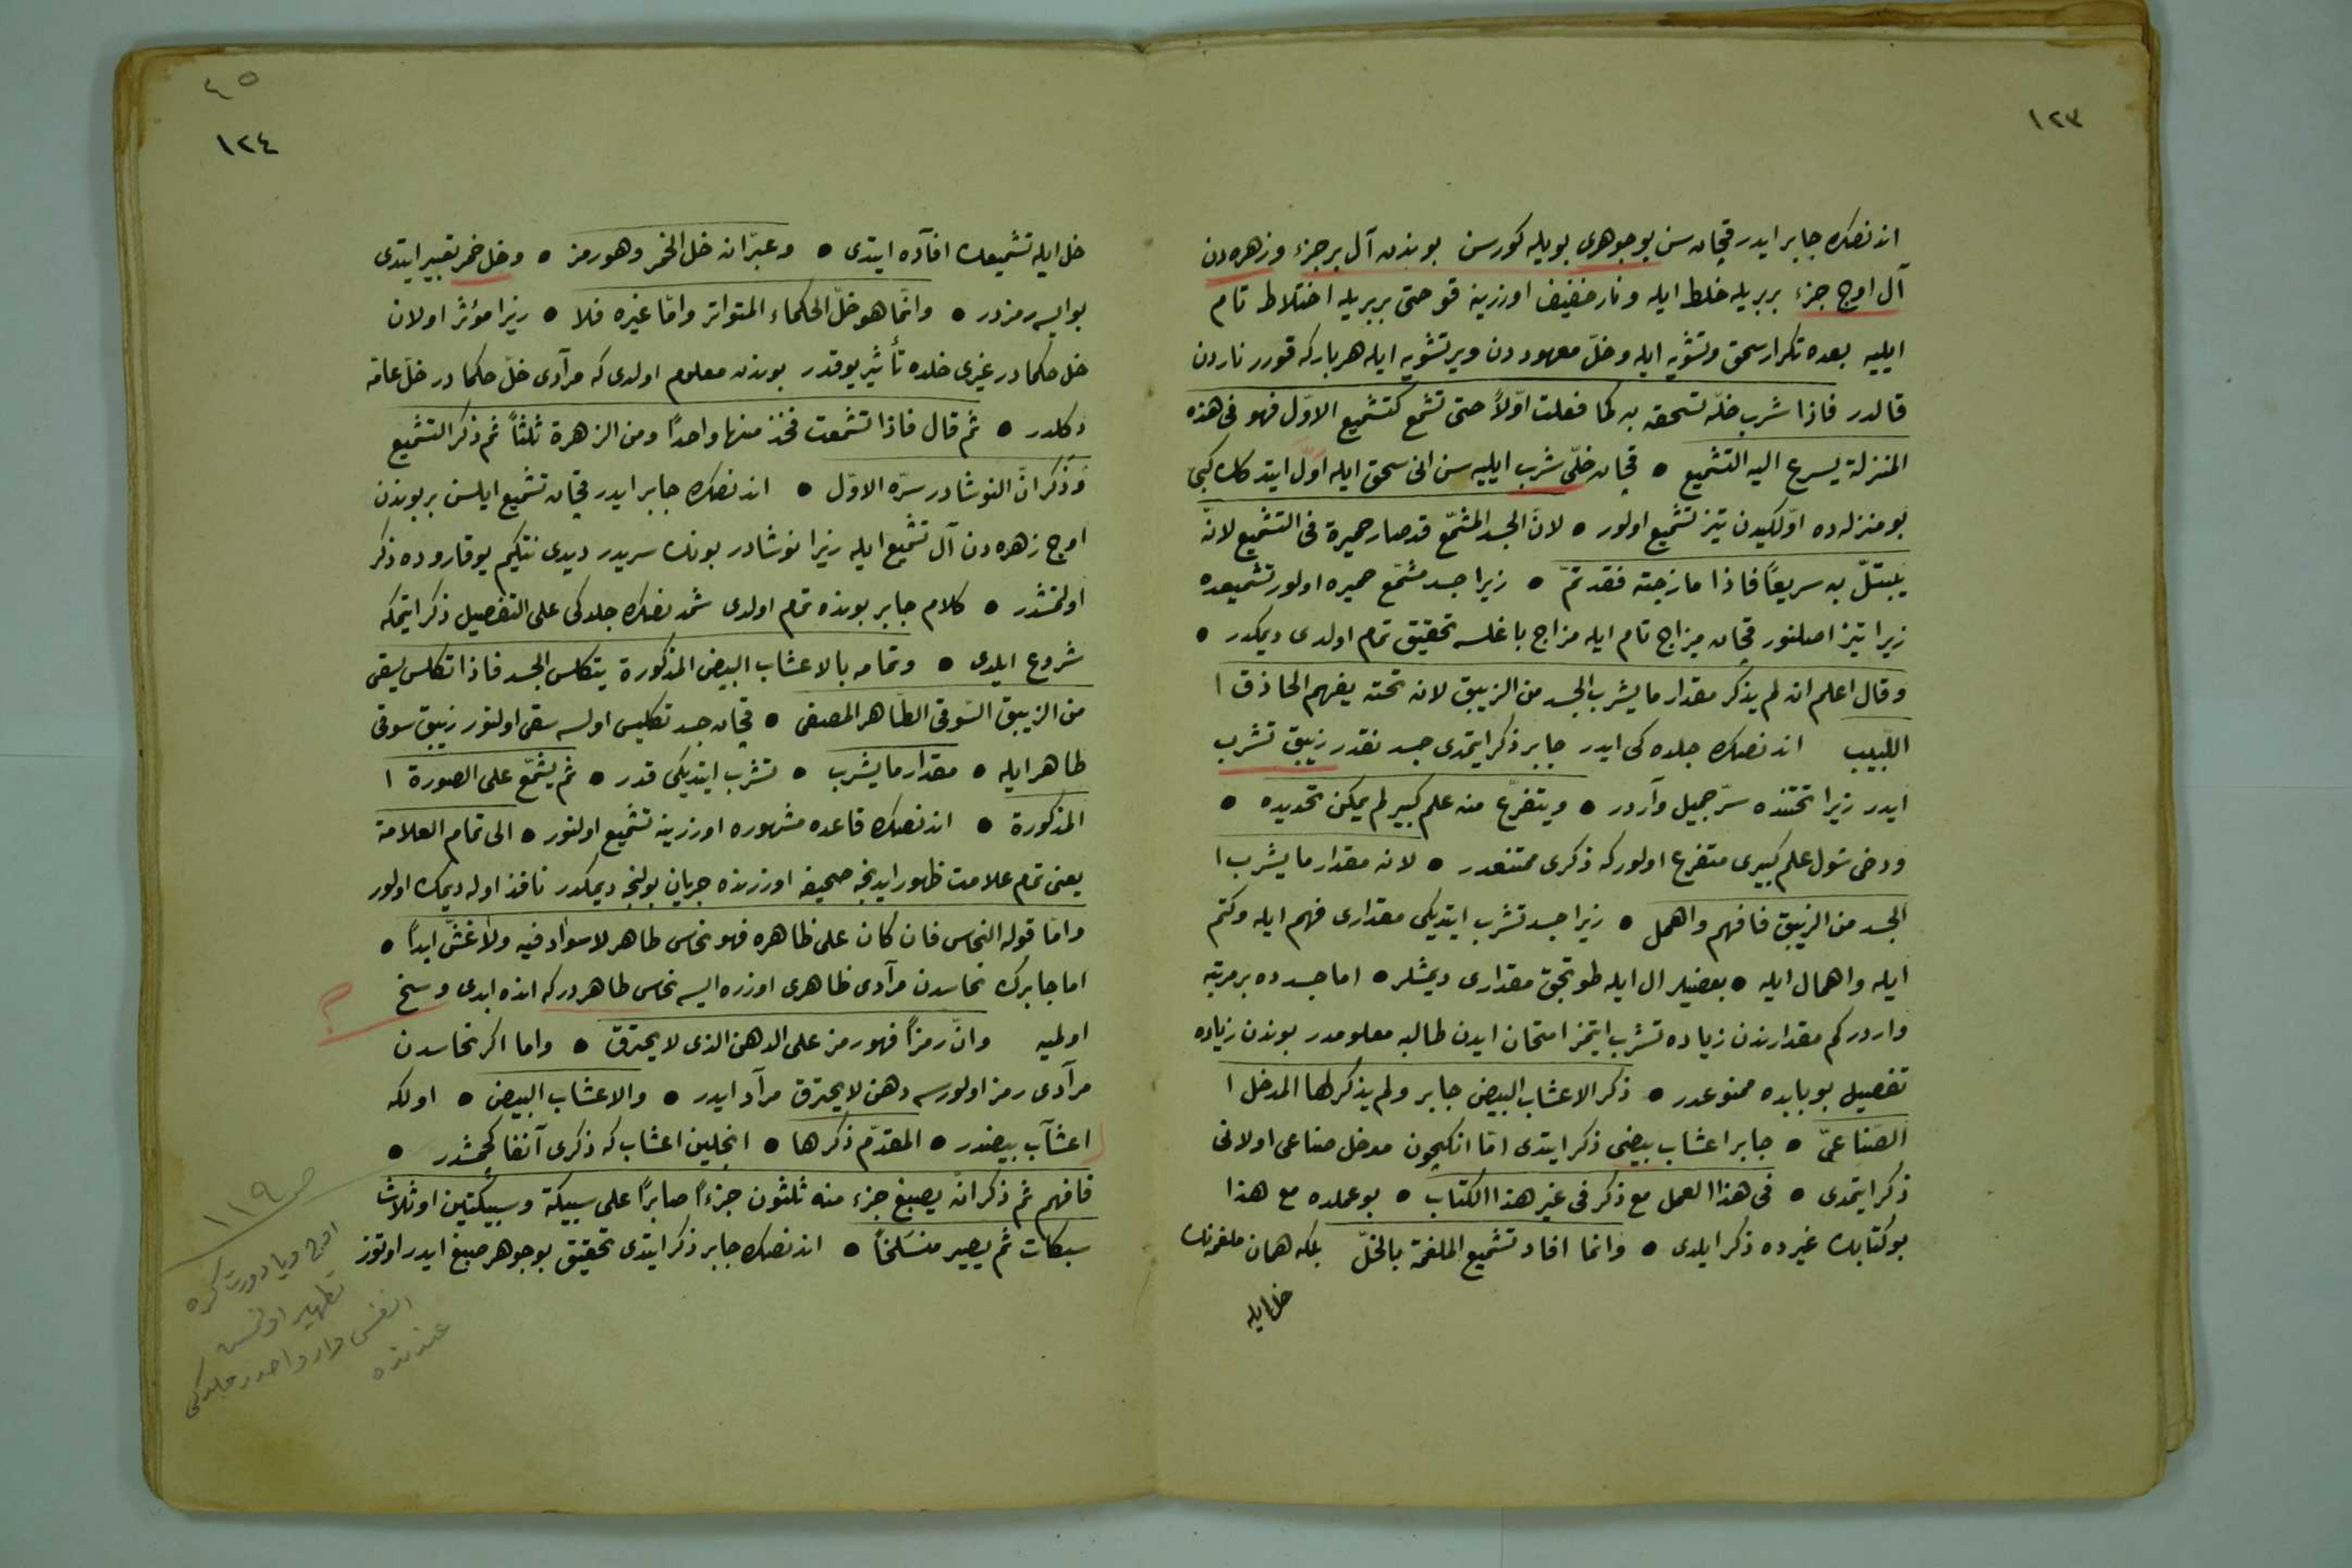 ١٢٣
اندنصكره جابر ايدر قچان سن بو جوهرى بويله كورسن بوندن آل بر جزء و زهره دن
آل اوچ جزء بربريله خلط ايله و نار خفيف اوزرينه قو حتى بربريله اختلاط تام
ايليه بعده تكرار سحق و تشويه ايله و خلّ معهوددن وير تشويه ايله هر باركه قورر ناردن
قالدر فاذا شرب خلّه تسحقه به كما فعلت اوّلاً حتى تشمع كتشميع الاوّل فهو فى هذه
المنزلة يسرع اليه التشميع • قچان خلّى شرب ايليه سن انى سحق ايله اوّل ايتدكك كبى
بو منزله ده اوّلكيدن تيز تشميع اولور • لانّ الجسد المشمّع قد صار خميرة فى التشميع لانّه
يبتلّ به سريعاً فاذا مازجته فقد تمّ • زيرا جسد مشمّع خميره اولور تشميعده
زيرا تيز اصلنور قچان مزاج تام ايله مزاج باغلسه تحقيق تمام اولدى ديمكدر •
وقال اعلم انه لم يذكر مقدار ما يشرب الجسد من الزيبق لانه تحته يفهم الحاذق ا
اللّبيب اندنصكره جلده كى ايدر جابر ذكر ايتمدى جسد نقدر زيبق تشرب
ايدر زيرا تحتنده سرّ جميل واردر • ويتفرّع منه علم كبير لم يمكن تحديده •
ودخى شول علم كبيرى متفرع اولور كه ذكرى ممتنعدر • لانه مقدار ما يشرب ا
الجسد من الزيبق فافهم واهمل • زيرا جسد تشرب ايتديكى مقدارى فهم ايله وكتم
ايله واهمال ايله • بعضيلر ال ايله طوتجق مقدارى ديمشلر • اما جسد ده بر مرتبه
واردر كم مقدارندن زياده تشرب ايتمز امتحان ايدن طالبه معلومدر بوندن زياده
تفصيل بو بابده ممنوعدر • ذكر الاعشاب البيض جابر ولم يذكر لها المدخل ا
الصّناعىّ • جابر اعشاب بيضى ذكر ايتدى امّا انكيچون مدخل صناعى اولانى
ذكر ايتمدى • فى هذا العمل مع ذكر فى غير هذا الكتاب • بو عملده مع هذا
بو كتابك غيرده ذكر ايلدى • وانما افاد تشميع الملغمة بالخلّ بلكه همان ملغمه نك
خل ايله
٤٥
١٢٤
خل ايله تشميعك افاده ايتدى • وعبّر انه خل الخمر وهو رمز • وخل خمر تعبير ايتدى
بو ايسه رمزدر • وانّما هو خلّ الحكماء المتواتر وامّا غيره فلا • زيرا مؤثر اولان
خل حكمادر غيرى خلده تأثير يوقدر بوندن معلوم اولدى كه مرادى خلّ حكمادر خلّ عامّه
دكلدر • ثم قال فاذا تشمعت فخذ منها واحداً ومن الزهرة ثلثاً ثم ذكر التشميع
وذكر انّ النوشادر سرّه الاوّل • اندنصكره جابر ايدر قچان تشميع ايلسن بر بوندن
اوچ زهره دن آل تشميع ايله زيرا نوشادر بونك سريدر ديدى نتكيم يوقاروده ذكر
اولنمشدر • كلام جابر بونده تمام اولدى شمدنصكره جلدكى على التفصيل ذكر ايتمكه
شروع ايلدى • وتمامه بالاعشاب البيض المذكورة يتكلس الجسد فاذا تكلس يسقى
من الزيبق السّوقى الطّاهر المصفى • قچان جسد تكليس اولسه سقى اولنور زيبق سوقى
طاهر ايله • مقدار ما يشرب • تشرب ايتديكى قدر • ثم يشمّع على الصورة ا
المذكورة • اندنصكره قاعده مشهوره اوزرينه تشميع اولنور • الى تمام العلامة
يعنى تمام علامت ظهور ايدنجه صحيفه اوزرنده جريان بولنجه ديمكدر نافذ اوله ديمك اولور
وامّا قوله النحاس فان كان على ظاهره فهو نحاس طاهر لا سواد فيه ولا غشّ ابداً •
اما جابرك نحاسدن مرادى ظاهرى اوزره ايسه نحاس طاهردر كه انده ابدى وسخ
اولميه وانّ رمزاً فهو رمز على الدهن الذى لا يحترق • واما اكر نحاسدن
مرادى رمز اولورسه دهن لا يحترق مراد ايدر • والاعشاب البيض • اولكه
اعشاب بيضدر • المقدّم ذكرها • انجلين اعشاب كه ذكرى آنفا كچمشدر •
فافهم ثم ذكر انّه يصبغ جزء منه ثلثون جزءاً صابراً على سبيكة وسبيكتين او ثلاث
سبكات ثم يصير منسلخاً • اندنصكره جابر ذكر ايتدى تحقيق بو جوهر صبغ ايدر اوتوز
؟
ص ١١٩
اوچ ويا دورت كره
تطهير اولنمسى
عندنده